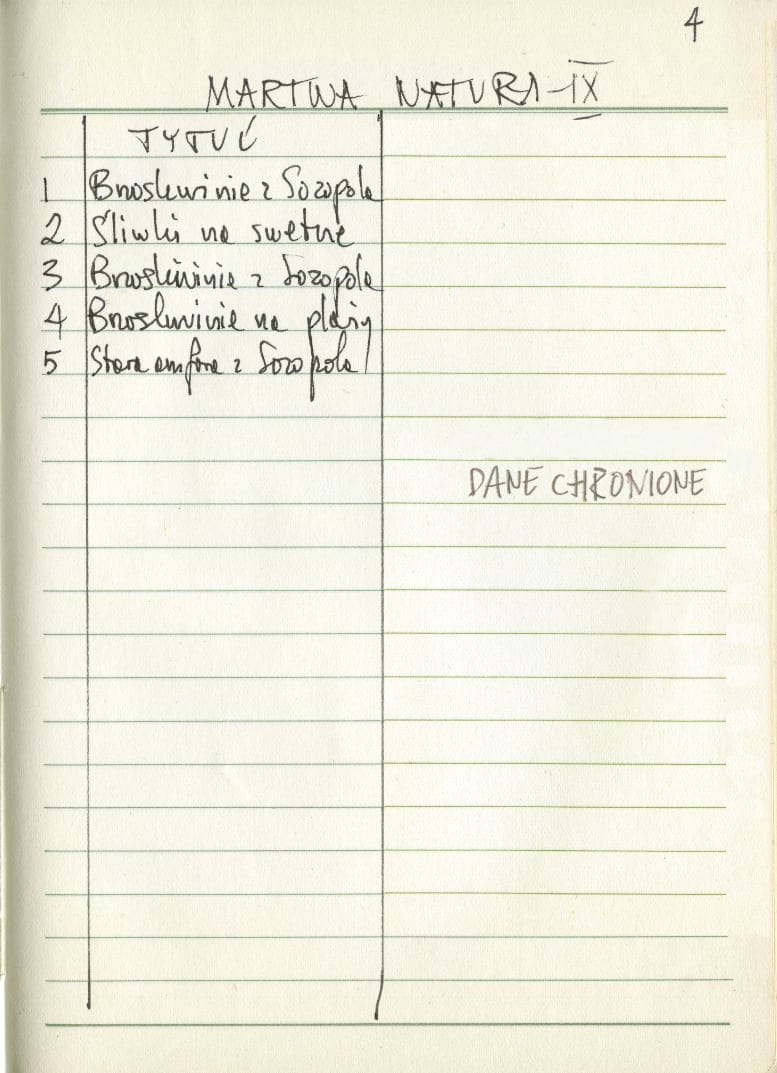 4
MARTWA NATURA - IX
TYTUŁ
1 Brzoskwinie z Sozopola
2 Śliwki na swetrze
3 Brzoskwinie z Sozopola
4 Brzoskwinie na plaży
5 Stara amfora z Sozopola
DANE CHRONIONE